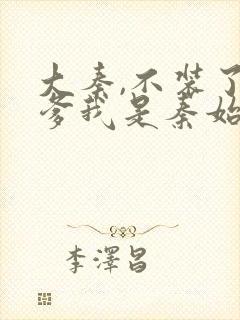 大秦,不装了
爹我是秦始
李澤昌